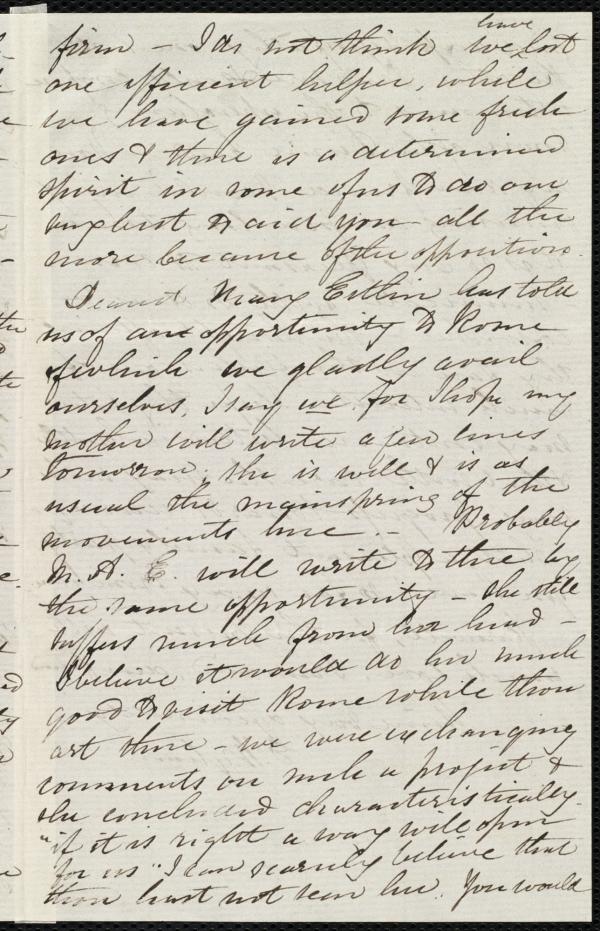 have
firm - I do not think we ^ lost
one efficient helper, while
we have gained some fresh
ones & there is a determined
spirit in some of us to do our
very best to aid you - all the
more because of the opposition.
Dearest Mary Estlin has told
us of an opportunity to Rome
of which we gladly avail
ourselves. I say we for I hope my
mother will write a few lines
tomorrow; she is well & is as
usual the mainspring of the
movements here. - Probably
M. A. E. will write to thee by
the same opportunity - she still
suffers much from her head -
I believe it would do her much
good to visit Rome while thou
art there - we were exchanging
comments on such a project &
she concluded characteristically
"if it is right a way will open
for us". I can scarcely believe that
thou hast not seen her. You would